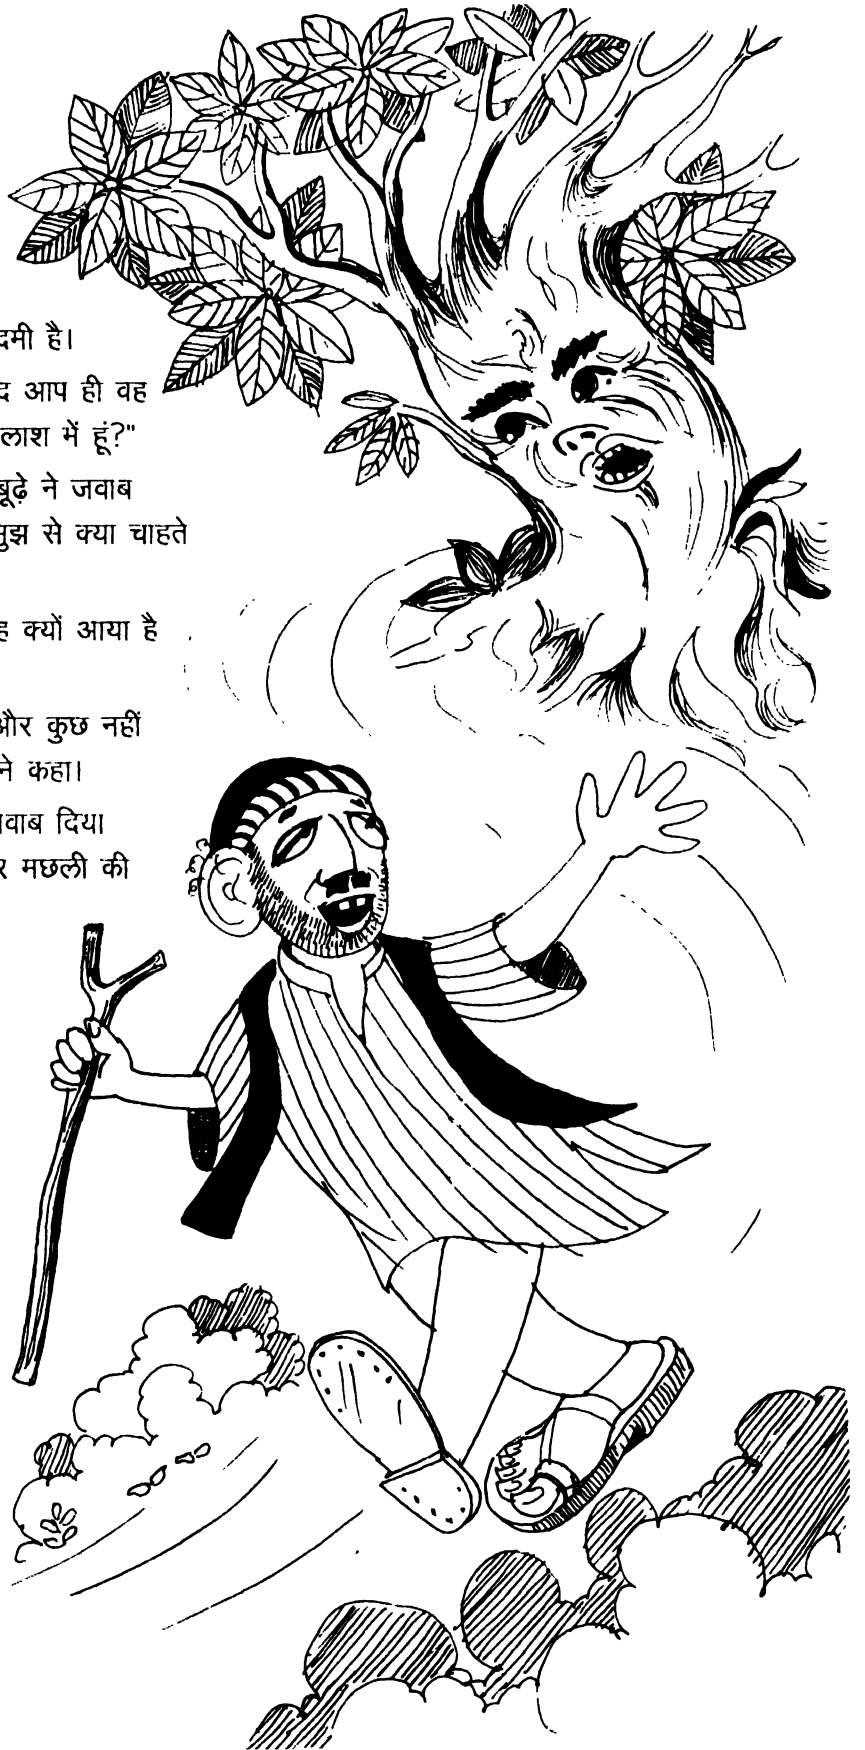 दमी है।
द आप ही वह
लाश में हूं?"
बूढ़े ने जवाब
मुझ से क्या चाहते
ह क्यों आया है
और कुछ नहीं
ने कहा।
जवाब दिया
र मछली की